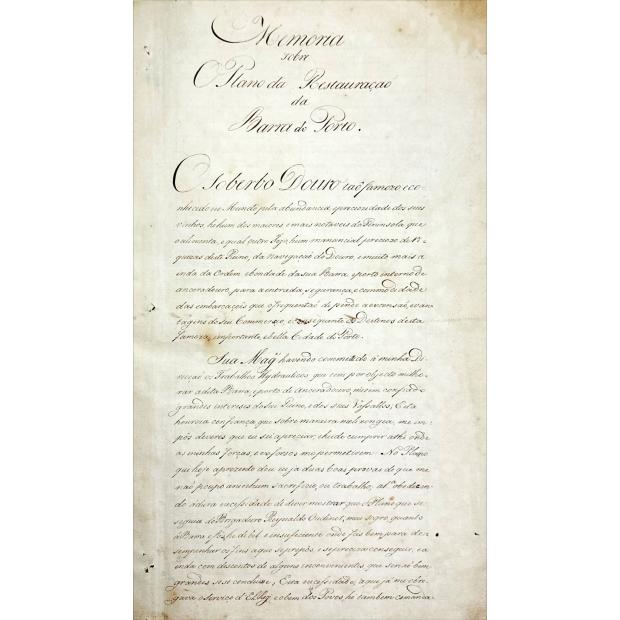 Memoria
sobre
O Plano da Restauração
da
Barra do Porto.
O soberbo Douro taõ famozo e co-
nhecido no Mundo pela abundancia, e preciosidade dos seus
vinhos, he hum dos maiores, e mais notaveis da Peninsola que
o alimenta, e qual outro Tejo, hum manancial preciozo de Ri-
quezas deste Reino, da Navegação do Douro, e muito mais a-
inda da Ordem, e bondade da sua Barra, e porto interno de
ancoradouro, para a entrada, segurança, e commodidade
das embarcaçoẽs que o frequentaõ depende a extensaõ, e van-
tagens do seu Commercio, e conseguante os Destinos desta
famoza, importante, e bella Cidade do Porto.
Sua Mag. havendo commetido á minha Di-
recçaõ os Trabalhos Hydraulicos que tem por objecto milho-
rar a dita Barra, e porto de ancoradouro, me confiado
grandes interesses do seu Reino, e dos seus Vassallos, E esta
honroza confiança que sobre maneira me im-
pôs deveres que eu sei apreciar, e heide cumprir athe onde
as minhas forças, e esforsos me permetirem. No Plano
que hoje aprezento dou eu ja duas boas provas de que me
naõ poupo a nenhum sacrificio, ou trabalho, a obedecen-
do á dura necessidade de dever mostrar que o Plano que se
seguia do Brigadeiro Reynaldo Oudinot, meu sogro, quanto
á Barra, e insuficiente onde fois bem para de-
sempenhar os fins a que se propôs, e se precizo conseguir, e a-
inda com descontos de alguns inconvenientes que seriaõ bem
grandes se se concluise, Esta necessidade, a que já me obri-
gava o serviço d'ElRey, e o bem dos Povos, he tambem